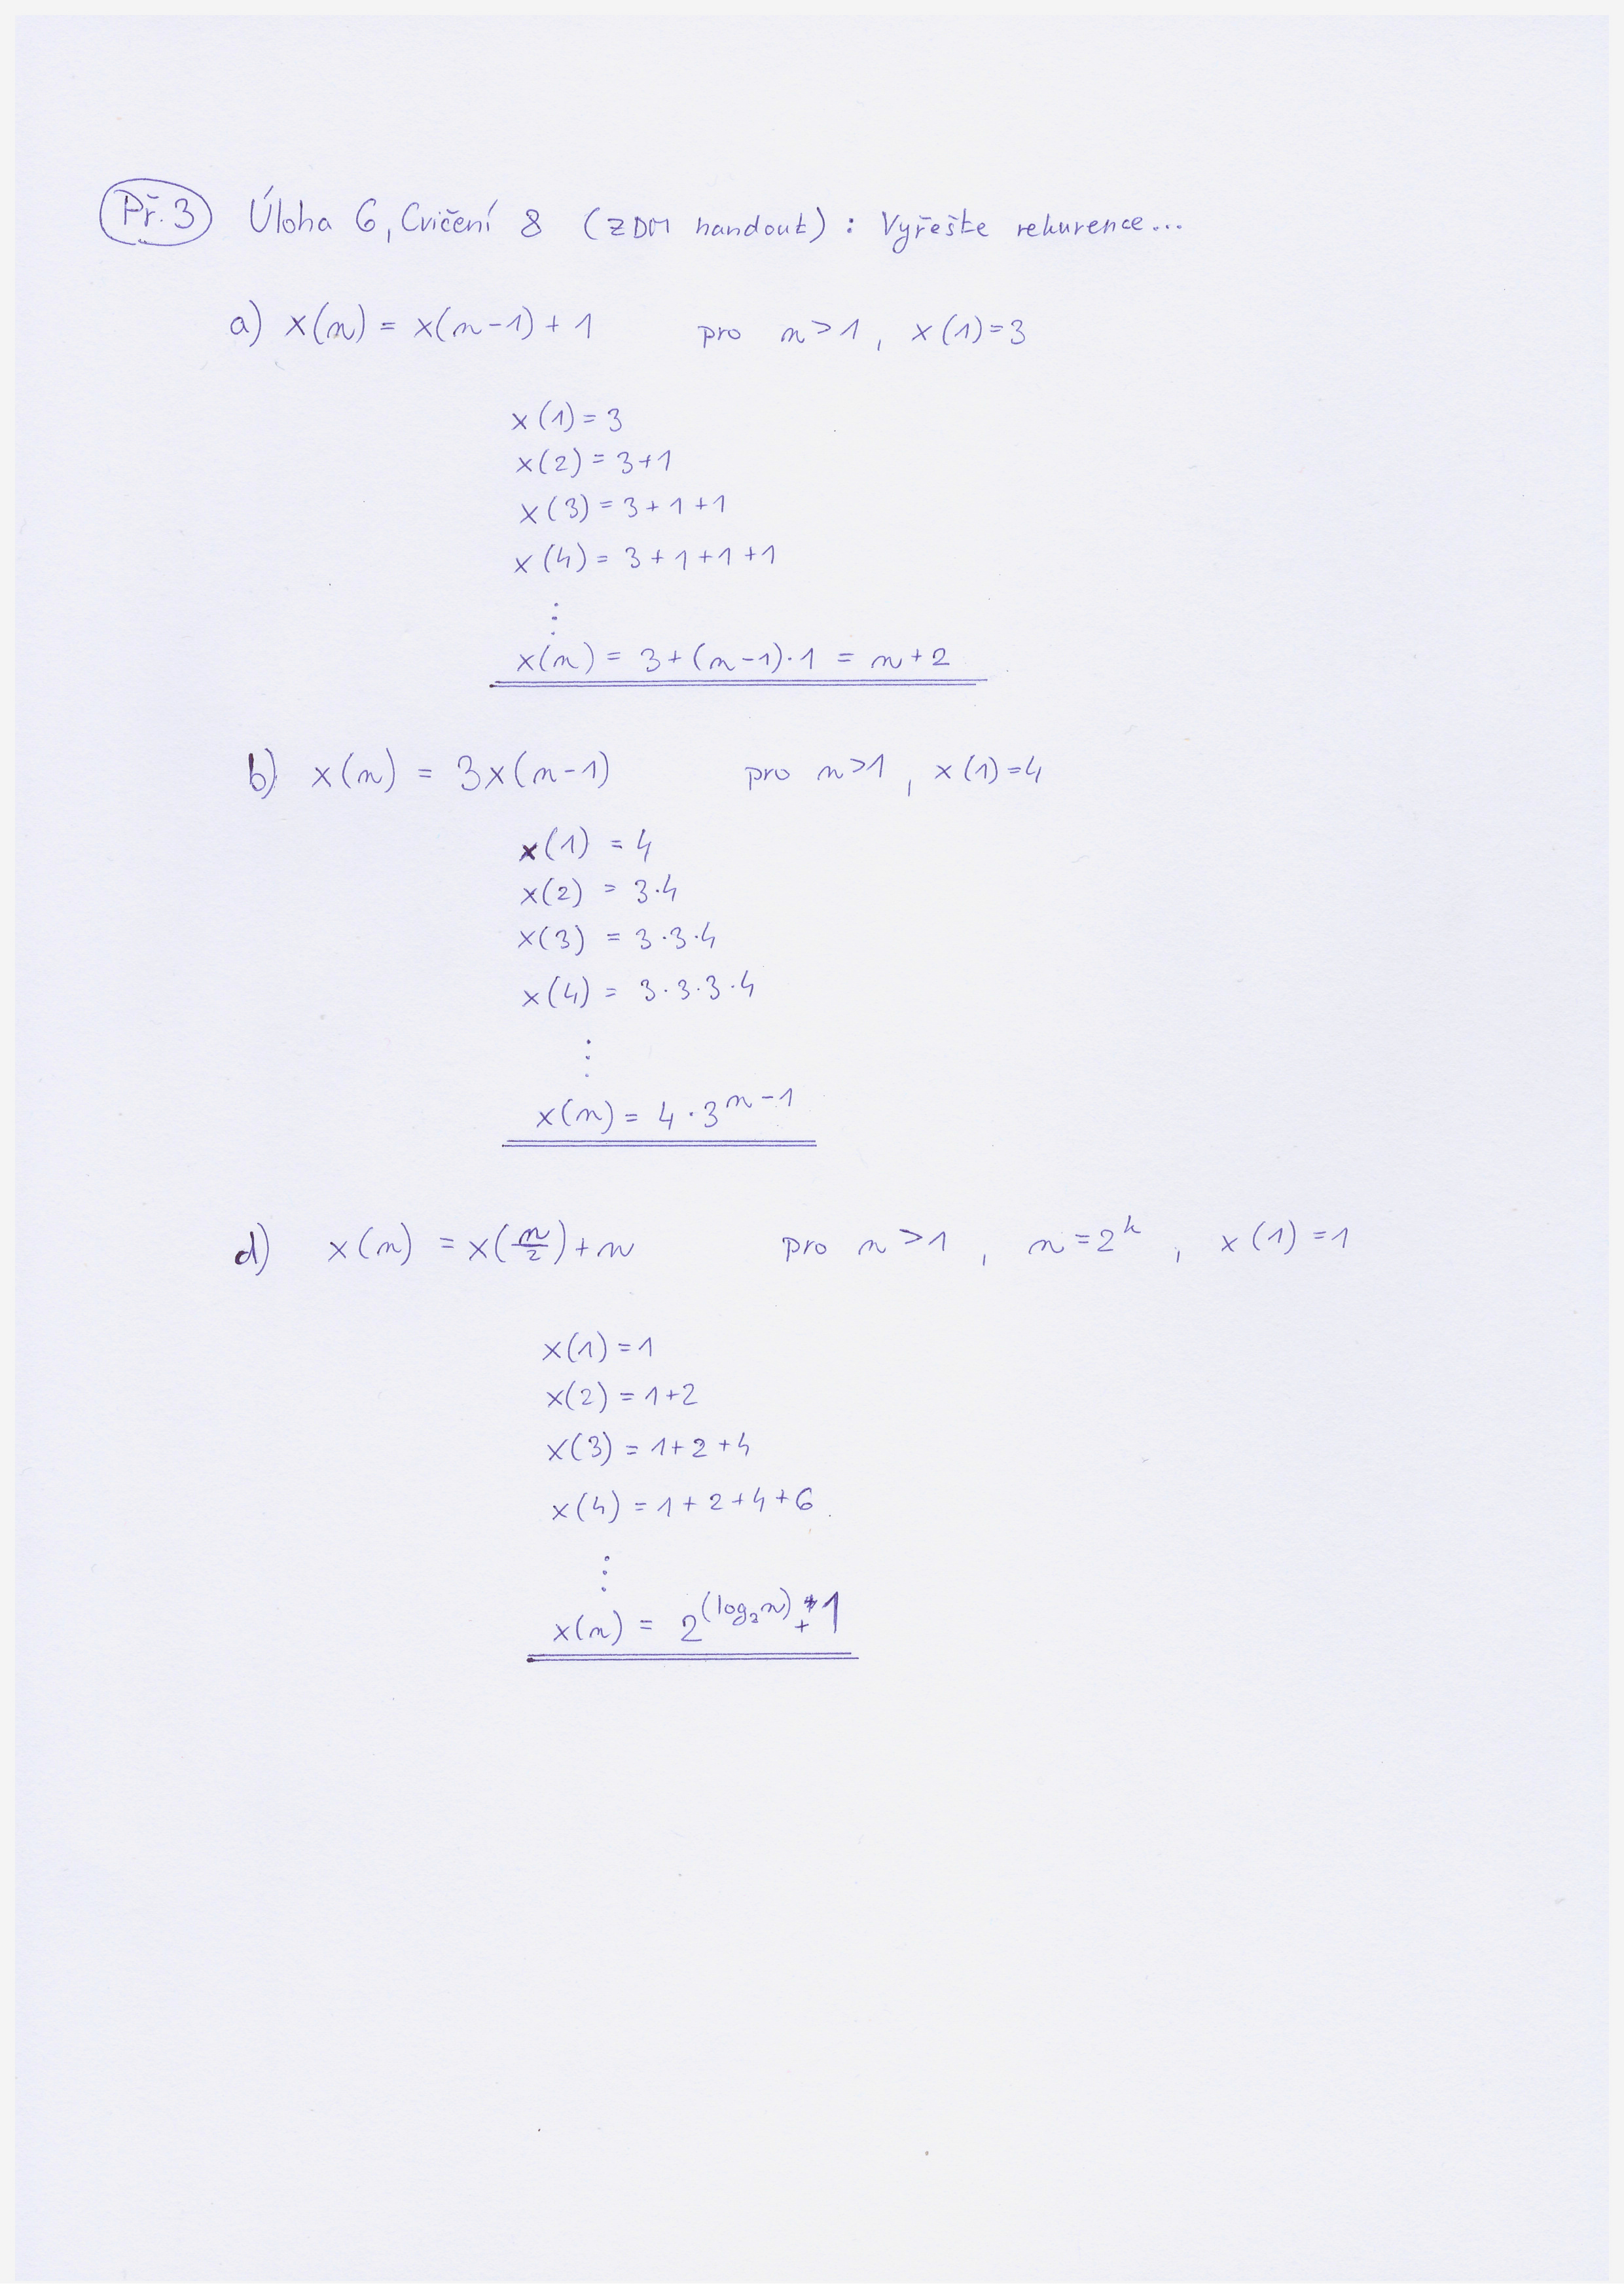 Př. 3 Úloha 6, Cvičení 8 (ZDM handout) : Vyřešte rekurence...
a) x(n) = x(n-1) + 1 pro n > 1, x(1)=3
x(1) = 3
x(2) = 3+1
x(3) = 3+1+1
x(4) = 3+1+1+1
⋮
x(n) = 3+(n-1)·1 = n+2
b) x(n) = 3x(n-1) pro n>1, x(1)=4
x(1) = 4
x(2) = 3·4
x(3) = 3·3·4
x(4) = 3·3·3·4
⋮
x(n) = 4·3^(n-1)
d) x(n) = x(n/2)+n pro n > 1, n = 2^k, x(1) = 1
x(1) = 1
x(2) = 1+2
x(3) = 1+2+4
x(4) = 1+2+4+6
⋮
x(n) = 2^(log₂n) + 1